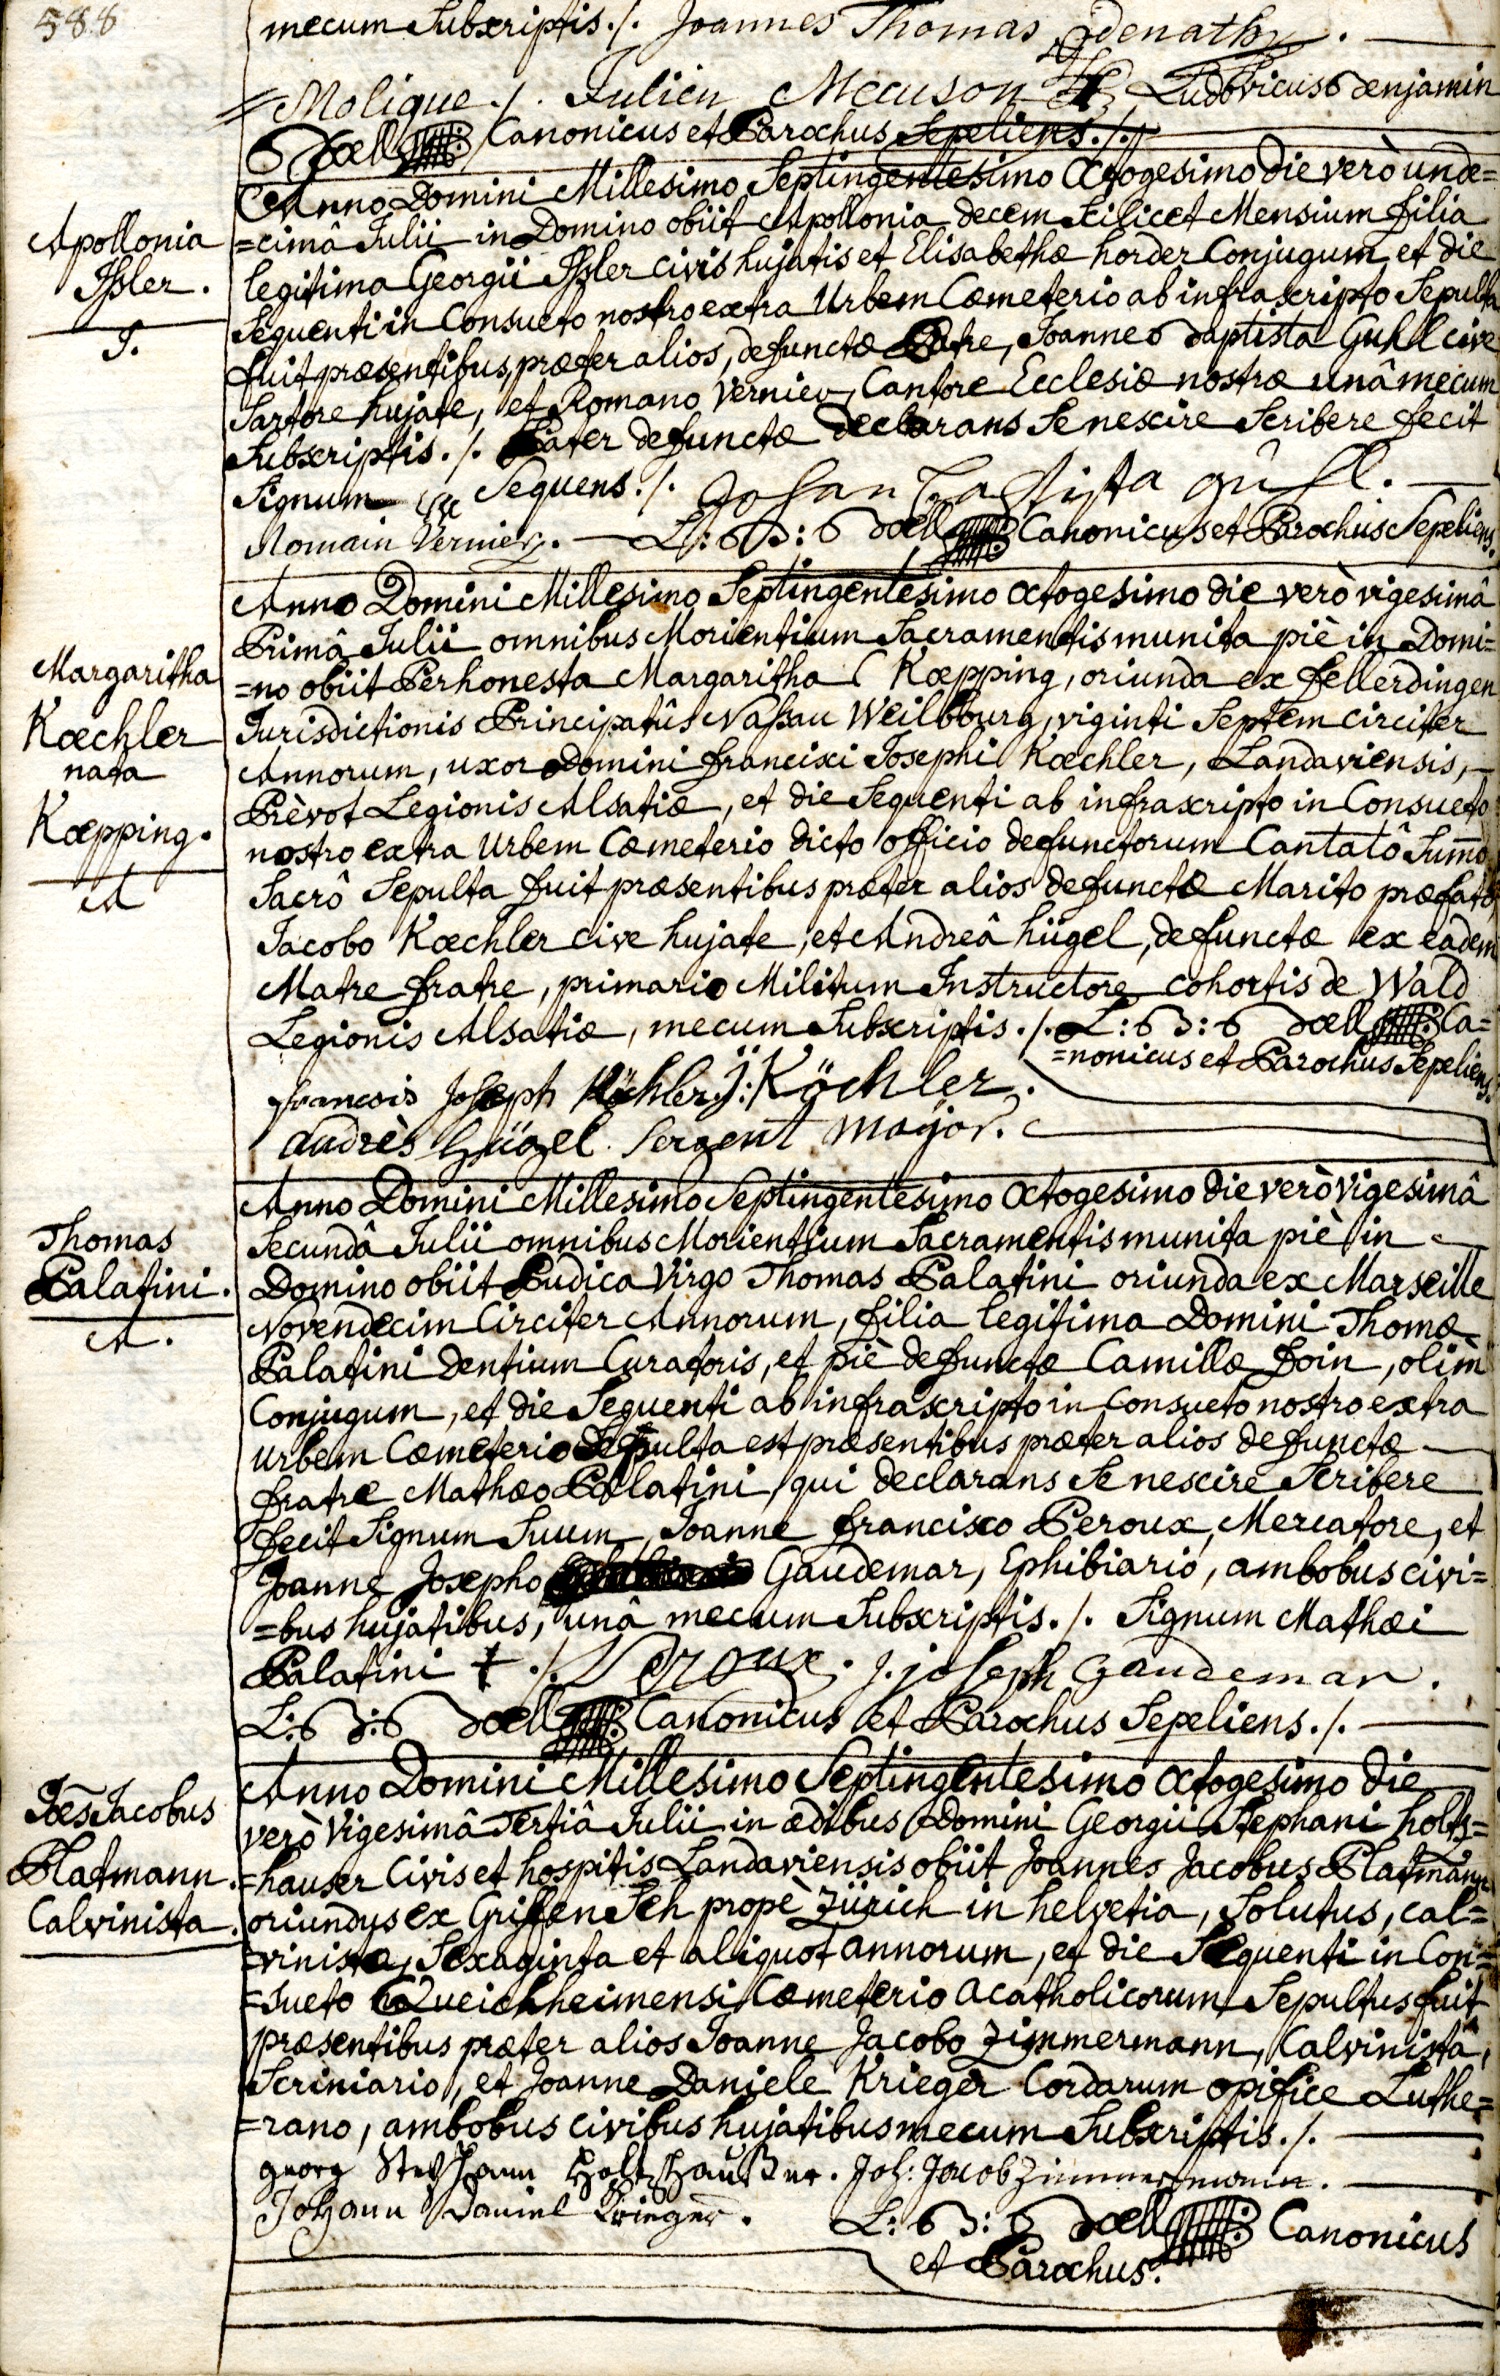 588
mecum Subscriptis ./. Joannes Thomas Odenath .
Molique ./. Julien Mecuson Ludovicus Benjamin
Boell Canonicus et Parochus Sepeliens ./.
Apollonia
Issler .
J.
Anno Domini Millesimo Septingentesimo Octogesimo die verò unde=
=cimâ Julii in Domino obiit Apollonia decem scilicet Mensium filia
legitima Georgii Issler civis hujatis et Elisabethæ horder Conjugum, et die
Sequenti in Consueto nostro extra Urbem Cæmeterio ab infrascripto Sepulta
fuit præsentibus, præter alios, defunctæ Patre, Joanne Baptista Guhl cive
Sartore hujate, et Romano Vernier, Cantore Ecclesiæ nostræ unâ mecum
Subscriptis ./. Pater defunctæ declarans Se nescire Scribere fecit
Signum Sequens ./. Johan Baptista guhl .
Romain Vernier . L : B : Boell Canonicus et Parochus Sepeliens.
Margaritha
Kœchler
nata
Kœpping .
A
Anno Domini Millesimo Septingentesimo Octogesimo die verò vigesimâ
Primâ Julii omnibus Morientium Sacramentis munita piè in Domi=
=no obiit Perhonesta Margaritha Kœpping, oriunda ex fellerdingen
Jurisdictionis Principatûs Nassau Weilbburg, viginti Septem circiter
Annorum, uxor Domini francisci Josephi Kœchler, Landaviensis,
Prèvot Legionis Alsatiæ, et die Sequenti ab infrascripto in Consueto
nostro extra Urbem Cæmeterio dicto officio defunctorum Cantatô Summô
Sacrô Sepulta fuit præsentibus præter alios defunctæ Marito præfatô
Jacobo Kœchler cive hujate, et Andreâ hügel, defunctæ ex eadem
Matre fratre, primario Militum Instructore cohortis de Wald
Legionis Alsatiæ, mecum Subscriptis ./. L : B : Boell Ca=
=nonicus et Parochus Sepeliens.
francois Joseph Köchler J : Köchler .
andrès hügel . Sergent mayor .
Thomas
Palatini .
A .
Anno Domini Millesimo Septingentesimo Octogesimo die verò Vigesimâ
Secundâ Julii omnibus Morientium Sacramentis munita piè in
Domino obiit Pudica Virgo Thomas Palatini oriunda ex Marseille
Novendecim Circiter Annorum, filia legitima Domini Thomæ
Palatini Dentium Curatoris, et piè defunctæ Camillæ foin, olim
Conjugum, et die Sequenti ab infrascripto in Consueto nostro extra
Urbem Cæmeterio Sepulta est præsentibus præter alios defunctæ
fratre Mathæo Palatini, qui declarans Se nescire Scribere
fecit Signum Suum, Joanne francisco Peroux, Mercatore, et
Joanne Josepho Gaudemar, Ephibiario, ambobus civi=
=bus hujatibus, unâ mecum Subscriptis ./. Signum Mathæi
Palatini ./. Peroux . J. joseph Gaudemar .
L : B : Boell Canonicus et Parochus Sepeliens ./.
Joēs Jacobus
Platmann .
Calvinista .
Anno Domini Millesimo Septingentesimo Octogesimo die
verò Vigesimâ Tertiâ Julii in ædibus Domini Georgii Stephani holts=
=hauser Civis et hospitis Landaviensis obiit Joannes Jacobus Platmann
oriundus ex Griffen Seh propè Zürich in helvetia, Solutus, cal=
=vinista, Sexaginta et aliquot annorum, et die Sequenti in Con=
=sueto Queichheimensi Cæmeterio acatholicorum Sepultus fuit
præsentibus præter alios Joanne Jacobo Zimmermann, Calvinista,
Scriniario, et Joanne Daniele Krieger Cordarum opifice Luthe=
=rano, ambobus civibus hujatibus mecum Subscriptis ./.
georg Stephann Holtzhaußer . Joh : Jacob Zimmermann .
Johann Daniel Krieger .
L : B : Boell Canonicus
et Parochus .